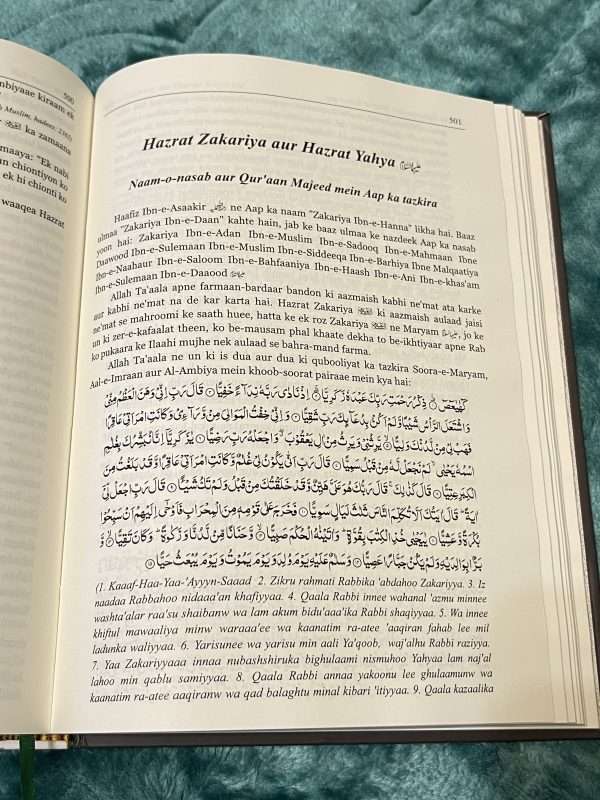 500
nbiyaae kiraam ek
Muslim, hadees: 2365)
ka zamaana
maaya: "Ek nabi
un chiontiyon ko
ek hi chionti ko
waaqea Hazrat
501
Hazrat Zakariya aur Hazrat Yahya
Naam-o-nasab aur Qur'aan Majeed mein Aap ka tazkira
Haafiz Ibn-e-Asaakir ne Aap ka naam "Zakariya Ibn-e-Hanna" likha hai. Baaz
ulmaa "Zakariya Ibn-e-Daan" kahte hain, jab ke baaz ulmaa ke nazdeek Aap ka nasab
yoon hai: Zakariya Ibn-e-Adan Ibn-e-Muslim Ibn-e-Sadooq Ibn-e-Mahmaan Ibne
Daawood Ibn-e-Sulemaan Ibn-e-Muslim Ibn-e-Siddeeqa Ibn-e-Barhiya Ibne Malqaatiya
Ibn-e-Naahaur Ibn-e-Saloom Ibn-e-Bahfaaniya Ibn-e-Haash Ibn-e-Ani Ibn-e-khas'am
Ibn-e-Sulemaan Ibn-e-Daaood
Allah Ta'aala apne farmaan-bardaar bandon ki aazmaish kabhi ne'mat ata karke
aur kabhi ne'mat na de kar karta hai. Hazrat Zakariya ki aazmaish aulaad jaisi
ne'mat se mahroomi ke saath huee, hatta ke ek roz Zakariya ne Maryam, jo ke
un ki zer-e-kafaalat theen, ko be-mausam phal khaate dekha to be-ikhtiyaar apne Rab
ko pukaara ke Ilaahi mujhe nek aulaad se bahra-mand farma.
Allah Ta'aala ne un ki is dua aur dua ki qubooliyat ka tazkira Soora-e-Maryam,
Aal-e-Imraan aur Al-Ambiya mein khoob-soorat pairaae mein kya hai:
كٓهٰيٰعٓصٓ ۝ ذِكْرُ رَحْمَتِ رَبِّكَ عَبْدَهٗ زَكَرِيَّا ۝ اِذْ نَادٰى رَبَّهٗ نِدَآءً خَفِيًّا ۝ قَالَ رَبِّ اِنِّىْ وَهَنَ الْعَظْمُ مِنِّىْ
وَاشْتَعَلَ الرَّاْسُ شَيْبًا وَّلَمْ اَكُنْۢ بِدُعَآئِكَ رَبِّ شَقِيًّا ۝ وَاِنِّىْ خِفْتُ الْمَوَالِىَ مِنْ وَّرَآءِىْ وَكَانَتِ امْرَاَتِىْ عَاقِرًا
فَهَبْ لِىْ مِنْ لَّدُنْكَ وَلِيًّا ۝ يَّرِثُنِىْ وَيَرِثُ مِنْ اٰلِ يَعْقُوْبَ وَاجْعَلْهُ رَبِّ رَضِيًّا ۝ يٰزَكَرِيَّآ اِنَّا نُبَشِّرُكَ بِغُلٰمِ
اسْمُهٗ يَحْيٰى لَمْ نَجْعَلْ لَّهٗ مِنْ قَبْلُ سَمِيًّا ۝ قَالَ رَبِّ اَنّٰى يَكُوْنُ لِىْ غُلٰمٌ وَّكَانَتِ امْرَاَتِىْ عَاقِرًا وَّقَدْ بَلَغْتُ مِنَ
الْكِبَرِ عِتِيًّا ۝ قَالَ كَذٰلِكَ قَالَ رَبُّكَ هُوَ عَلَىَّ هَيِّنٌ وَّقَدْ خَلَقْتُكَ مِنْ قَبْلُ وَلَمْ تَكُ شَيْئًا ۝ قَالَ رَبِّ اجْعَلْ لِّىْٓ
اٰيَةً قَالَ اٰيَتُكَ اَلَّا تُكَلِّمَ النَّاسَ ثَلٰثَ لَيَالٍ سَوِيًّا ۝ فَخَرَجَ عَلٰى قَوْمِهٖ مِنَ الْمِحْرَابِ فَاَوْحٰٓى اِلَيْهِمْ اَنْ سَبِّحُوْا
بُكْرَةً وَّعَشِيًّا ۝ يٰيَحْيٰى خُذِ الْكِتٰبَ بِقُوَّةٍ وَاٰتَيْنٰهُ الْحُكْمَ صَبِيًّا ۝ وَّحَنَانًا مِّنْ لَّدُنَّا وَزَكٰوةً وَكَانَ تَقِيًّا ۝ وَّ
بَرًّۢا بِوَالِدَيْهِ وَلَمْ يَكُنْ جَبَّارًا عَصِيًّا ۝ وَسَلٰمٌ عَلَيْهِ يَوْمَ وُلِدَ وَيَوْمَ يَمُوْتُ وَيَوْمَ يُبْعَثُ حَيًّا ۝
(1. Kaaaf-Haa-Yaa-'Ayyyn-Saaad 2. Zikru rahmati Rabbika 'abdahoo Zakariyya. 3. Iz
naadaa Rabbahoo nidaaa'an khafiyyaa. 4. Qaala Rabbi innee wahanal 'azmu minnee
washta'alar raa'su shaibanw wa lam akum bidu'aaa'ika Rabbi shaqiyyaa. 5. Wa innee
khiftul mawaaliya minw waraaa'ee wa kaanatim ra-atee 'aaqiran fahab lee mil
ladunka waliyyaa. 6. Yarisunee wa yarisu min aali Ya'qoob, waj'alhu Rabbi raziyya.
7. Yaa Zakariyyaaa innaa nubashshiruka bighulaami nismuhoo Yahyaa lam naj'al
lahoo min qablu samiyyaa. 8. Qaala Rabbi annaa yakoonu lee ghulaamunw wa
kaanatim ra-atee aaqiranw wa qad balaghtu minal kibari 'itiyyaa. 9. Qaala kazaalika